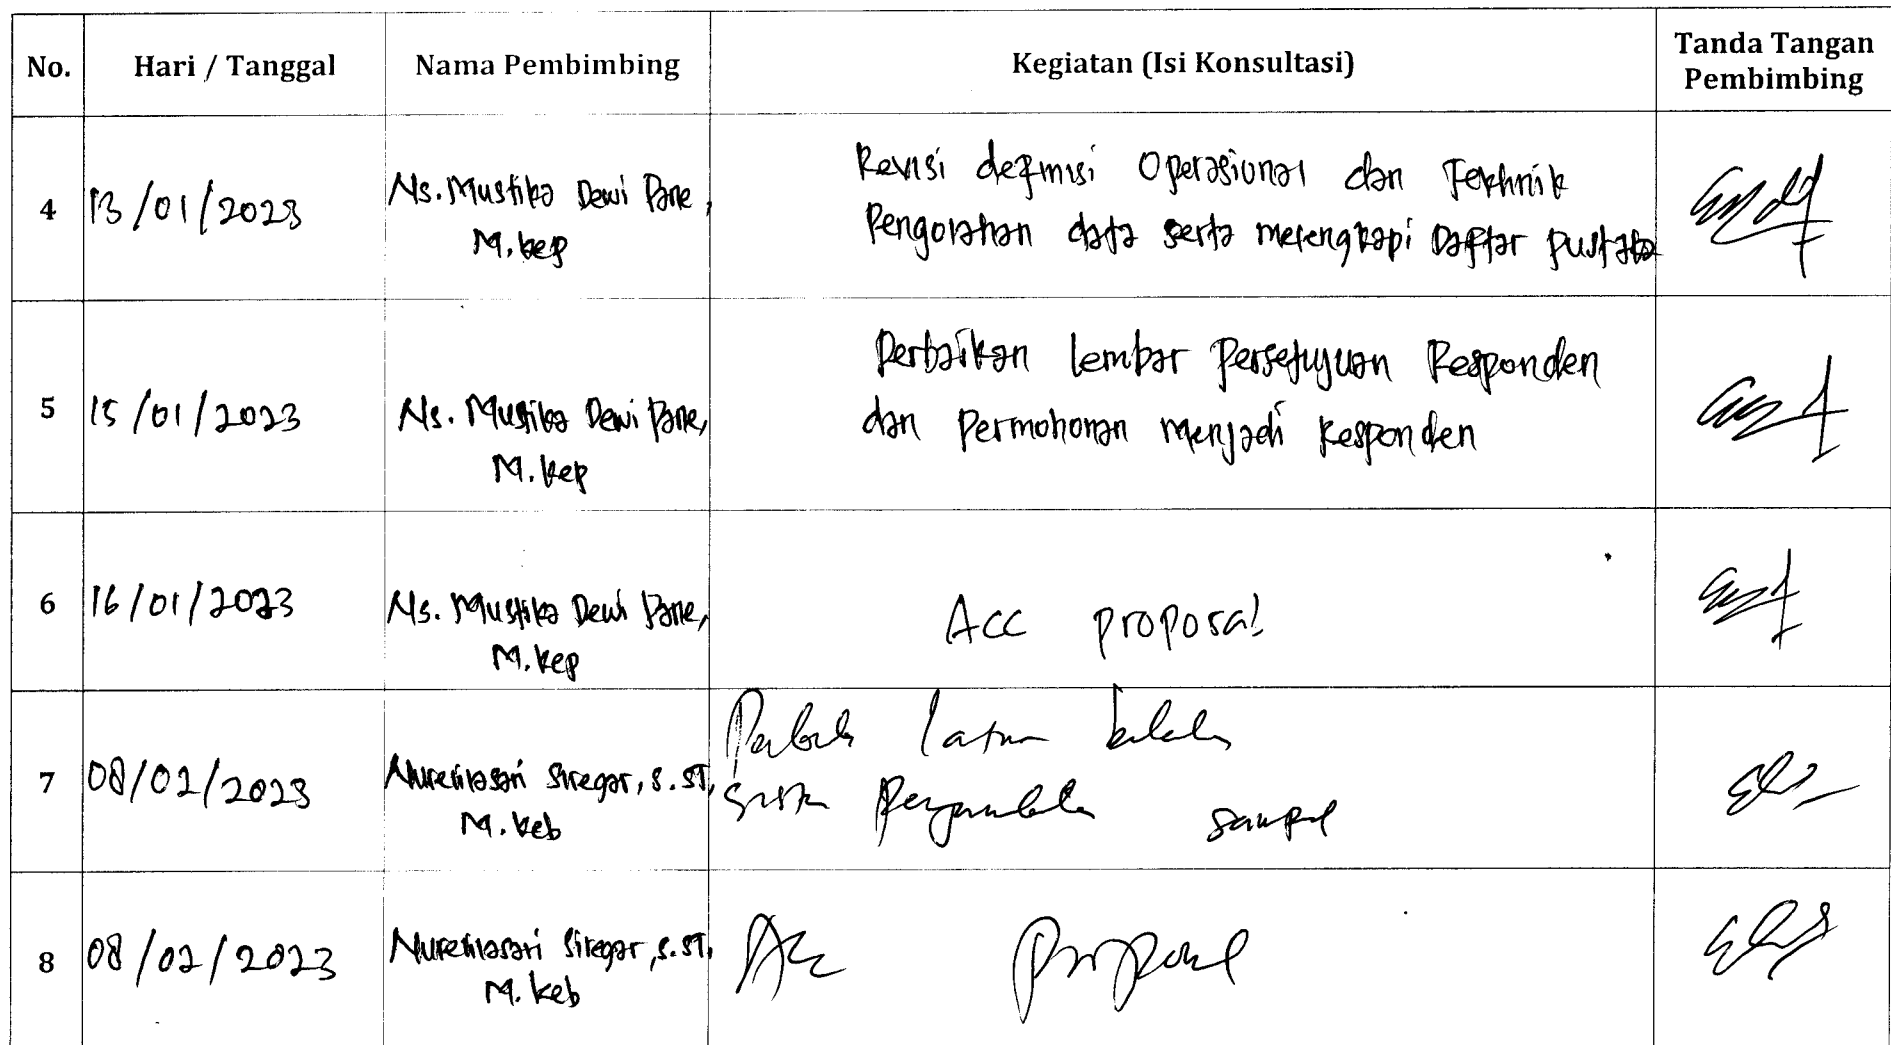 No. Hari / Tanggal Nama Pembimbing Kegiatan (Isi Konsultasi) Tanda Tangan
Pembimbing
4 13/01/2023 Ns. Mustika Dewi Pane, Revisi definisi Operasional dan Tekhnik
M.kep Pengolahan data serta melengkapi Daftar pustaka
5 15/01/2023 Ns. Mustika Dewi Pane, Perbaikan lembar Persetujuan Responden
M.kep dan Permohonan menjadi Responden
6 16/01/2023 Ns. Mustika Dewi Pane, Acc proposal
M.kep
7 08/02/2023 Siregar, S.ST, latar
M.keb sampel
8 08/02/2023 Siregar, S.ST, Acc Proposal
M.keb